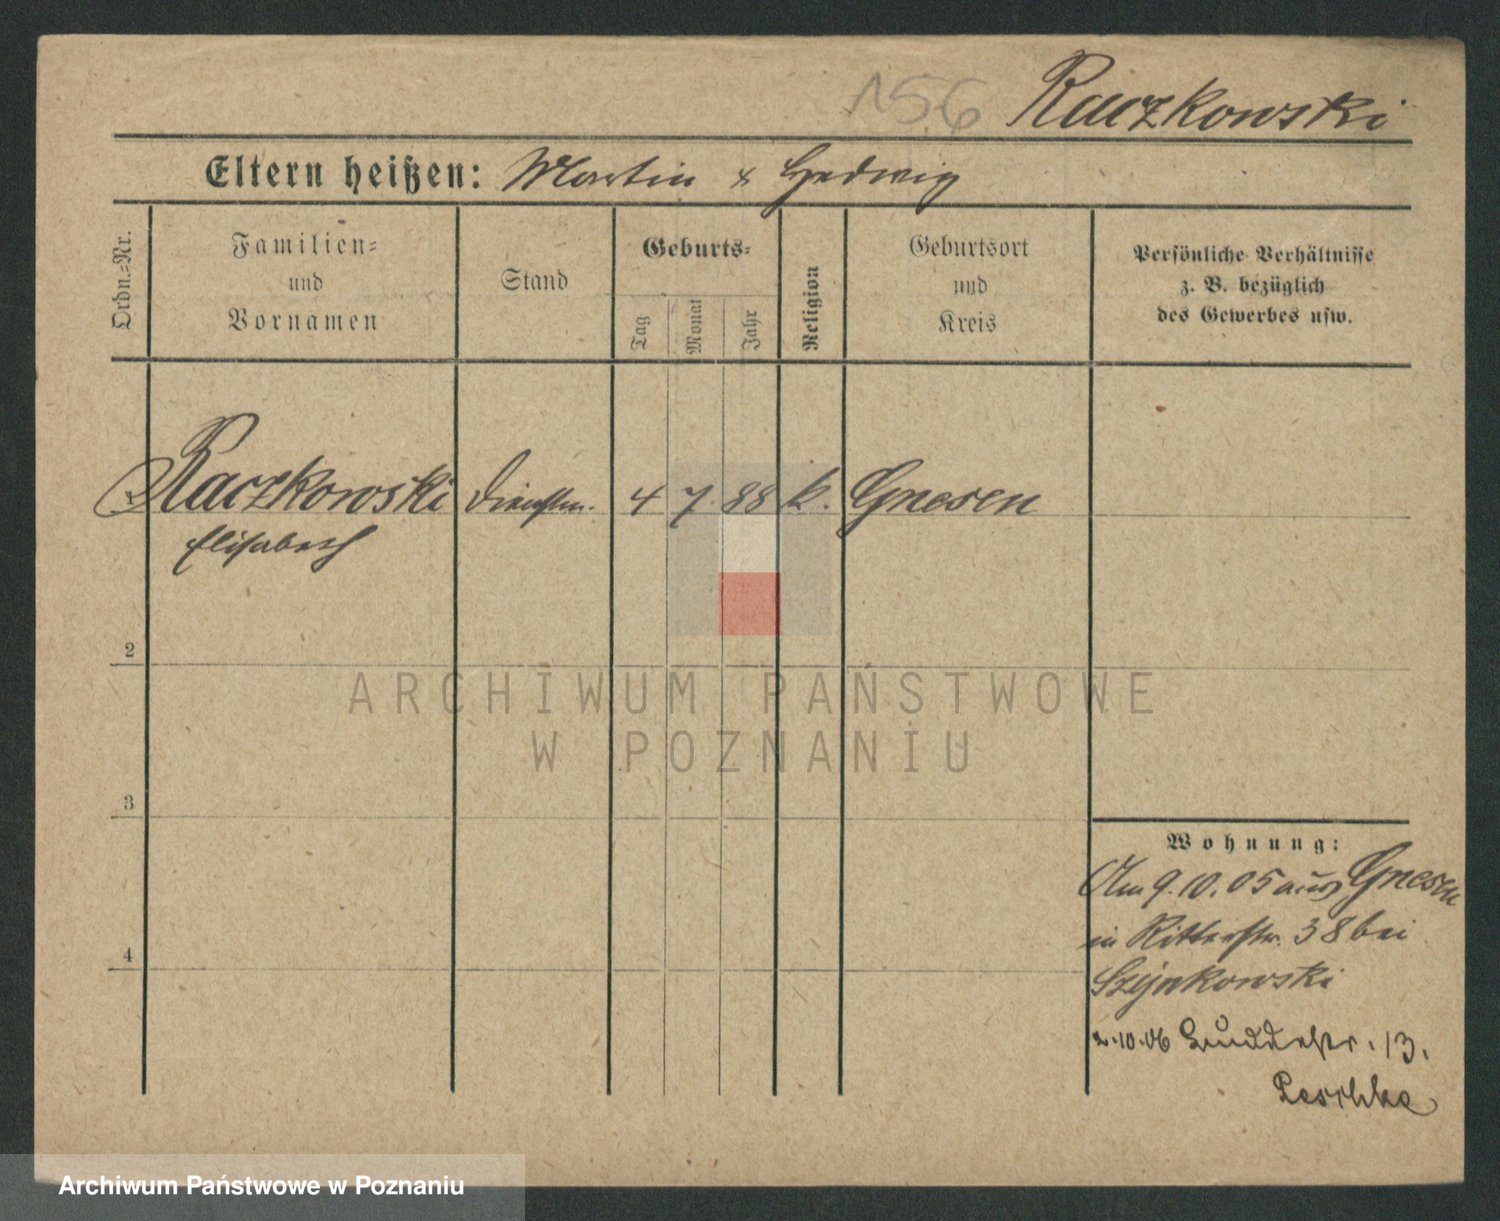 156 Raczkowski
Eltern heißen: Martin & Hedwig
Ordn.-Nr.
Familien-
und
Vornamen
Stand
Geburts-
Tag
Monat
Jahr
Religion
Geburtsort
und
Kreis
Persönliche Verhältnisse
z. B. bezüglich
des Gewerbes usw.
Raczkowski Dienstm. 4 7 88 k. Gnesen
Elisabeth
2
3
4
Wohnung:
Am 9.10.05 aus Gnesen
in Ritterstr. 38 bei
Szynkowski
2.10.06 13.
Peschke
ARCHIWUM PAŃSTWOWE
W POZNANIU
Archiwum Państwowe w Poznaniu